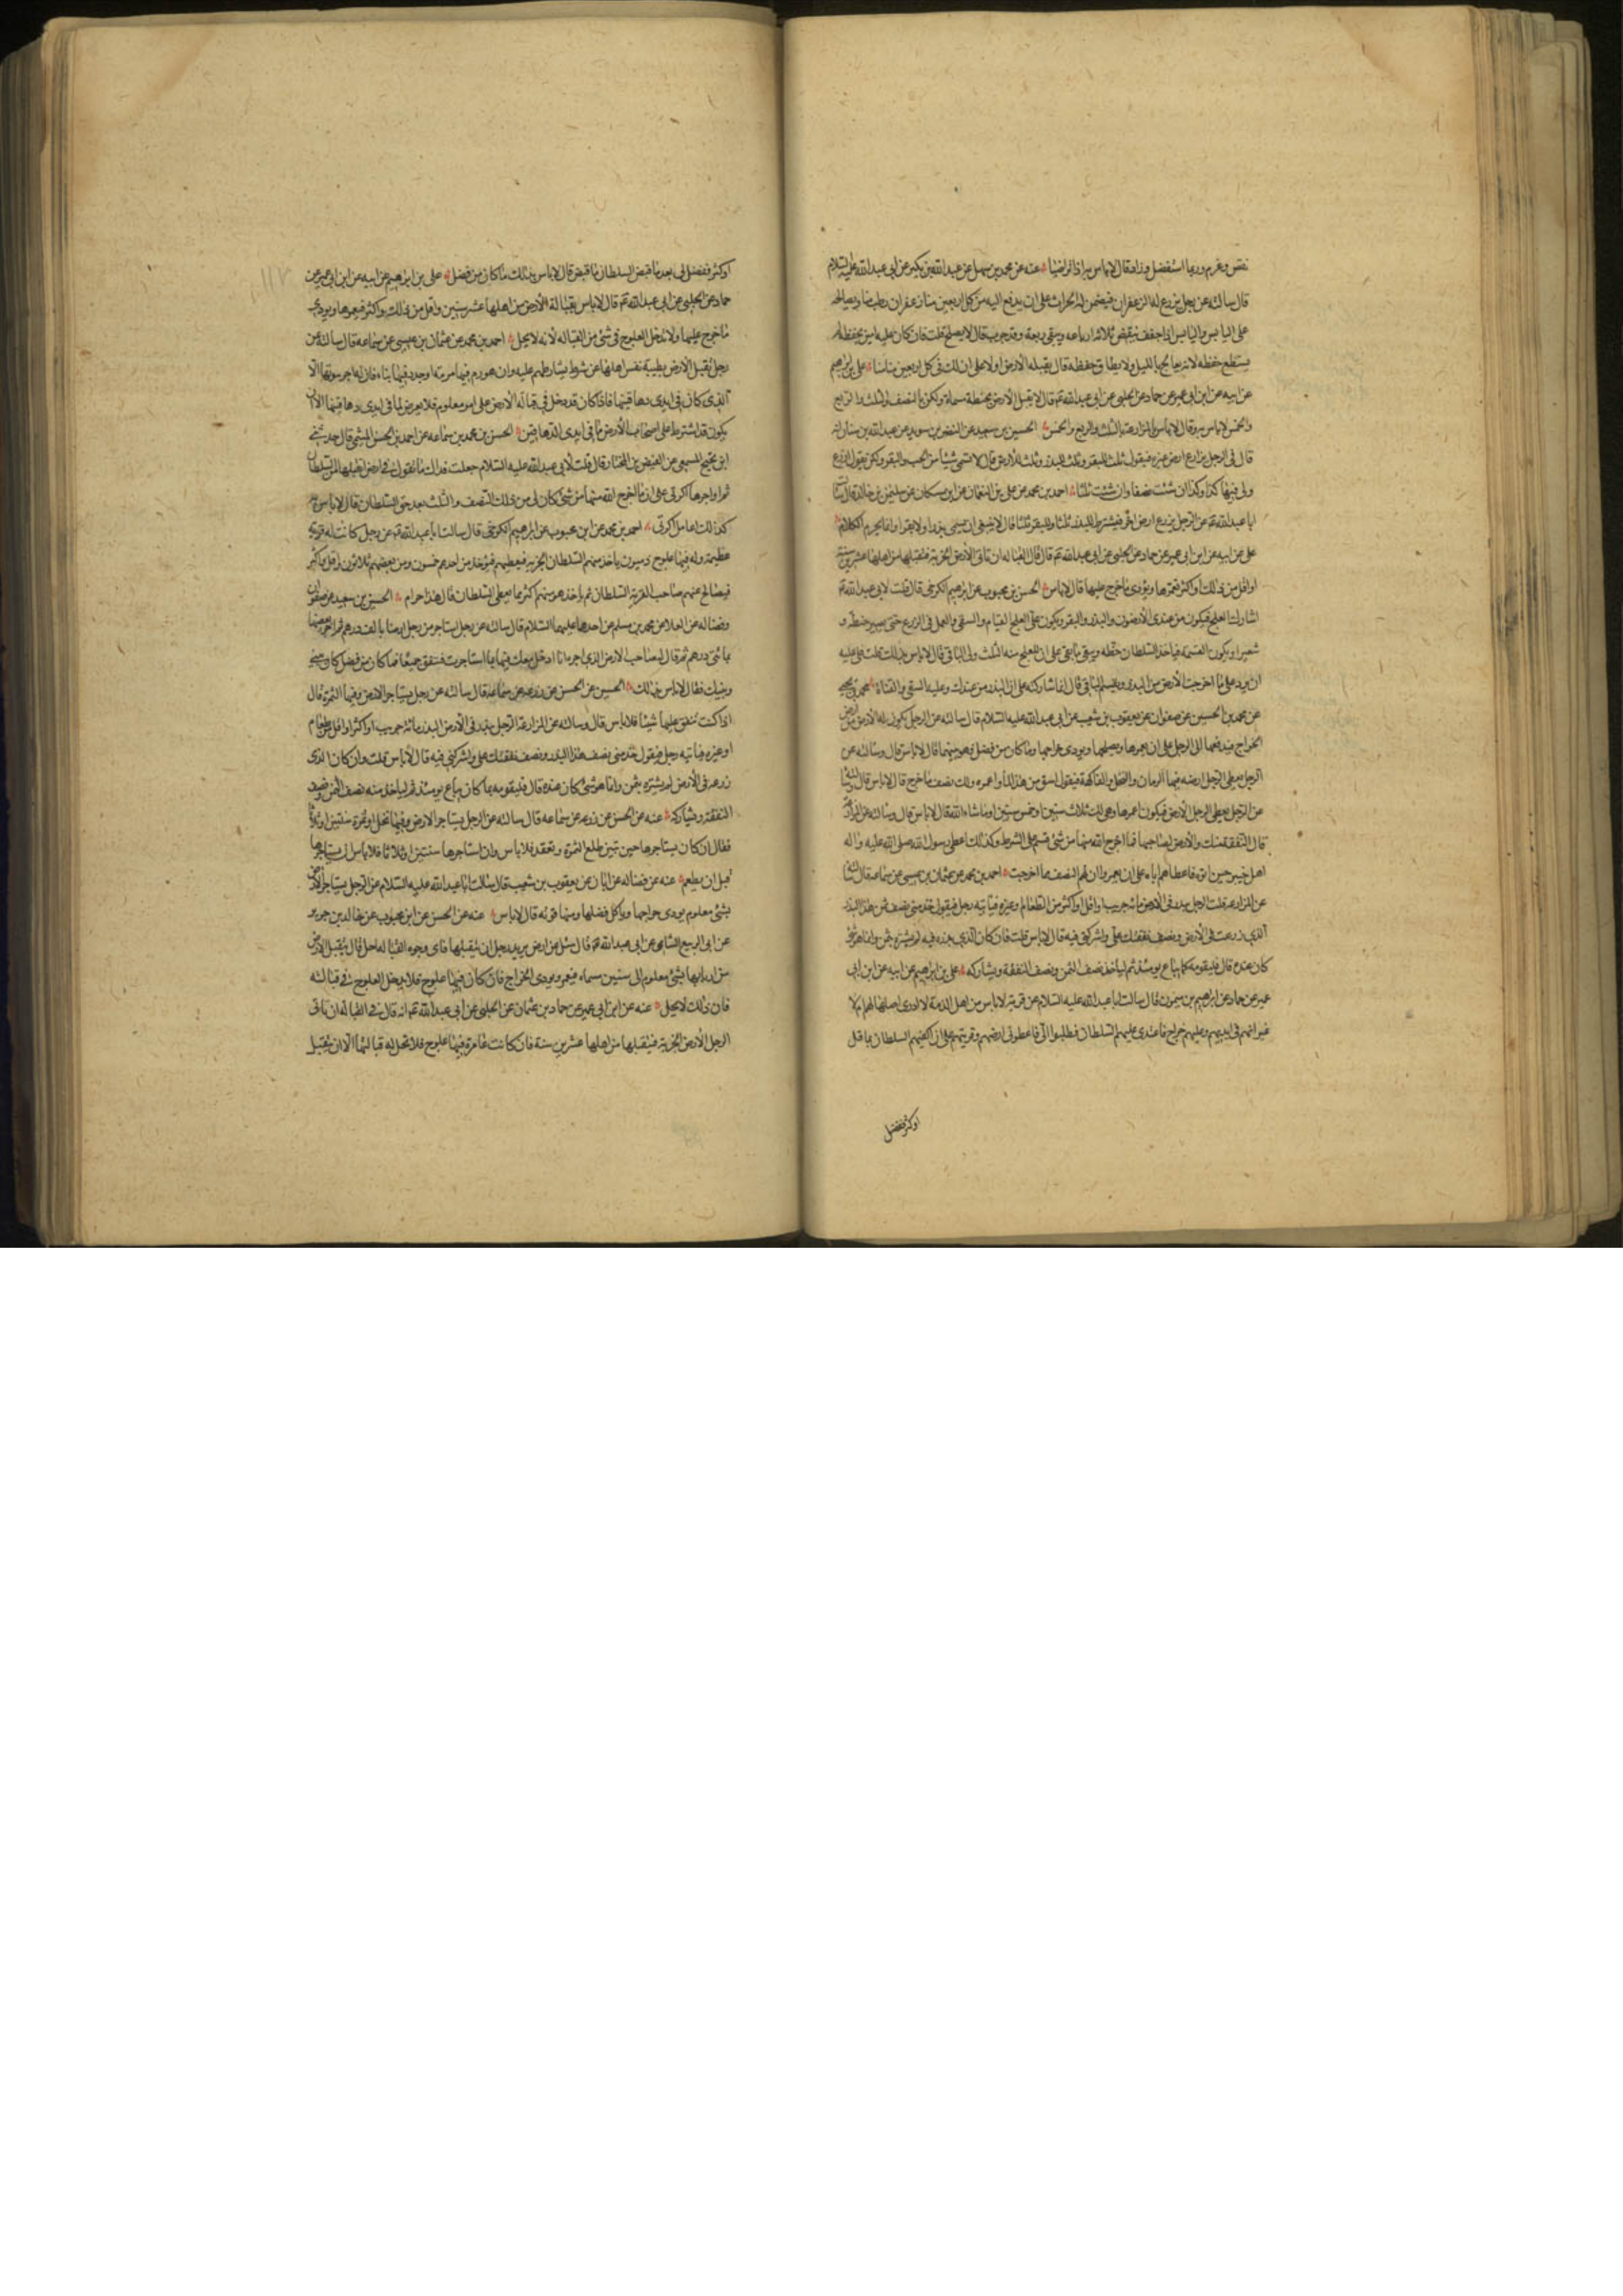 نقص وغرم وربما استفضل وزاد قال لا باس به اذا تراضيا عنه عن محمد بن سهل عن عبد الله بن بكير عن ابي عبد الله عليه السلام
قال سالته عن رجل يزرع له الزعفران فيضمن له الحراث على ان يدفع اليه من كل اربعين منا زعفران رطبا منا ويصالحه
على اليابس واليابس اذا جفف ينقص ثلاثة ارباعه ويبقى ربعه وقد جرب قال لا يصلح قلت فان كان عليه امين يحفظه لم
يستطع حفظه لانه يعالج بالليل ولا يطاق حفظه قال يقبله الارض اولا على ان لك في كل اربعين منا منا علي بن ابرهيم
عن ابيه عن ابن ابي عمير عن حماد عن الحلبي عن ابي عبد الله ع قال لا يقبل الارض بحنطة مسماة ولكن بالنصف والثلث والربع
والخمس لا باس به وقال لا باس بالمزارعة بالثلث والربع والخمس الحسين بن سعيد عن النضر بن سويد عن عبد الله بن سنان انه
قال في الرجل يزارع ارض غيره فيقول ثلث للبقر وثلث للبذر وثلث للارض قال لا تسمى شيئا من الحب والبقر ولكن تقول ازرع
ولي فيها كذا وكذا ان شئت نصفا وان شئت ثلثا احمد بن محمد عن علي بن النعمان عن ابن مسكان عن سليمن بن خالد قال سالت
ابا عبد الله ع عن الرجل يزرع ارض اخر فيشترط للبذر ثلثا وللبقر ثلثا قال لا ينبغي ان يسمى بذرا ولا بقرا وانما يحرم الكلام
علي عن ابيه عن ابن ابي عمير عن حماد عن الحلبي عن ابي عبد الله ع قال قال القبالة ان تاتي الارض الخربة فتقبلها من اهلها عشرين سنة
او اقل من ذلك او اكثر فتعمرها ويؤدى ما خرج عليها قال لا باس الحسن بن محبوب عن ابرهيم الكرخي قال قلت لابي عبد الله ع
اشارك العلج فيكون من عندي الارضون والبذر والبقر ويكون على العلج القيام والسقي والعمل في الزرع حتى يصير حنطة و
شعيرا ويكون القسمة فياخذ السلطان حقه ويبقى ما بقي على ان للعلج منه الثلث ولي الباقي قال لا باس بذلك قلت فلي عليه
ان يرد على ما اخرجت الارض من البذر ويقسم الباقي قال انما شاركته على ان البذر من عندك وعليه السقي والقناة محمد بن يحيى
عن محمد بن الحسين عن صفوان عن يعقوب بن شعيب عن ابي عبد الله عليه السلام قال سالته عن الرجل يكون له الارض من ارض
الخراج فيدفعها الى الرجل على ان يعمرها ويصلحها ويودي خراجها وما كان من فضل فهو بينهما قال لا باس قال وسالته عن
الرجل يعطي الرجل ارضه فيها الرمان والنخل والفاكهة فيقول اسق من هذا الماء واعمره ولك نصف ما خرج قال لا باس قال وسالته
عن الرجل يعطي الرجل الارض فيكون اعمرها وهي لك ثلاث سنين او خمس سنين او ما شاء الله قال لا باس قال وسالته عن المزارعة
قال النفقة منك والارض لصاحبها فما اخرج الله منها من شئ قسم على الشرط وكذلك اعطى رسول الله صلى الله عليه واله
اهل خيبر حين اتوه فاعطاهم اياه على ان يعمروا ان لهم النصف مما اخرجت احمد بن محمد عن عثمان بن عيسى عن سماعة قال سالته
عن المزارعة قلت الرجل يبذر في الارض مائة جريب واقل او اكثر من الطعام وغيره فياتيه رجل فيقول خذ مني نصف ثمن هذا البذر
الذي زرعت في الارض ونصف نفقتك علي واشركني فيه قال لا باس قلت فان كان الذي يبذره فيه لم يشتره بثمن وانما هو شئ
كان عنده قال فليقومه كما يباع يومئذ ثم لياخذ نصف الثمن ونصف النفقة ويشاركه علي بن ابرهيم عن ابيه عن ابن ابي
عمير عن حماد عن ابرهيم بن ميمون قال سالت ابا عبد الله عليه السلام عن قرية لاناس من اهل الذمة لا ادري اصلها لهم ام لا
غير انهم في ايديهم وعليهم خراج فاعتدى عليهم السلطان فطلبوا الي فاعطوني ارضهم وقريتهم على ان اكفيهم السلطان بما قل
او كثر ففضل
او كثر ففضل لي بعد ما قبض السلطان ما قبض قال لا باس بذلك ما كان من فضل علي بن ابرهيم عن ابيه عن ابن ابي عمير عن
حماد عن الحلبي عن ابي عبد الله ع قال لا باس بقبالة الارض من اهلها عشر سنين واقل من ذلك واكثر فيعمرها ويودي
ما خرج عليها ولا يدخل العلوج في شئ من القبالة لأنه لا يحل احمد بن محمد عن عثمان بن عيسى عن سماعة قال سالته عن
رجل يقبل الارض بطيبة نفس اهلها عن شرط يشارطهم عليه وان هو رم فيها مرمة او جدد فيها بناء فان له اجر بيوتها الا
الذي كان في ايدي دهاقينها فاذا كان قد دخل في قبالة الارض على امر معلوم فلا يعرض لما في ايدي دهاقينها الا ان
يكون قد اشترط على اصحاب الارض ما في ايدي الدهاقين الحسن بن محمد بن سماعة عن احمد بن الحسن الميثمي قال حدثني
ابن نجيح المسمعي عن الفيض بن المختار قال قلت لأبي عبد الله عليه السلام جعلت فداك ما تقول في ارض اتقبلها من السلطان
ثم اواجرها اكرتي على ان ما اخرج الله منها من شئ كان لي من ذلك النصف والثلث بعد حق السلطان قال لا باس به
كذلك اعامل اكرتي احمد بن محمد عن ابن محبوب عن ابرهيم الكرخي قال سالت ابا عبد الله ع عن رجل كانت له قرية
عظيمة وله فيها علوج ذميون ياخذ منهم السلطان الجزية فيعطيهم فيؤخذ من احدهم خمسون ومن بعضهم ثلاثون واقل واكثر
فيصالح عنهم صاحب القرية السلطان ثم ياخذ هو منهم اكثر مما يعطي السلطان قال هذا حرام الحسين بن سعيد عن صفوان
وفضالة عن العلا عن محمد بن مسلم عن احدهما عليهما السلام قال سالته عن رجل يستاجر من رجل ارضا بالف درهم ثم اجر بعضها
بمائتي درهم ثم قال له صاحب الارض الذي اجره انا ادخل معك فيها بما استاجرت فننفق جميعا فما كان من فضل كان بيني
وبينك فقال لا باس بذلك الحسين عن الحسن عن زرعه عن سماعة قال سالته عن رجل يستاجر الارض وفيها الثمرة قال
اذا كنت تنفق عليها شيئا فلا باس قال وسالته عن المزارعة الرجل يبذر في الارض البذر مائة جريب او اكثر او اقل طعام
او غيره فياتيه رجل فيقول خذ مني نصف هذا البذر ونصف نفقتك علي واشركني فيه قال لا باس قلت وان كان الذي
زرعه في الارض لم يشتره بثمن وانما هو شئ كان عنده قال فليقومه بما كان يباع يومئذ ثم لياخذ منه نصف الثمن ونصف
النفقة ويشاركه عنه عن الحسن عن زرعه عن سماعه قال سالته عن الرجل يستاجر الارض وفيها نخل او ثمرة سنتين او ثلاثا
فقال ان كان يستاجرها حين تبين طلع الثمرة وتعقد فلا باس وان استاجرها سنتين او ثلاثا فلا باس ان يستاجرها
قبل ان يطعم عنه عن فضالة عن ابان عن يعقوب بن شعيب قال سالت ابا عبد الله عليه السلام عن الرجل يستاجر الارض
بشئ معلوم يودي خراجها وياكل فضلها ومنها قوته قال لا باس عنه عن الحسن عن ابن محبوب عن خالد بن جرير
عن ابي الربيع الشامي عن ابي عبد الله ع قال سئل عن ارض يريد رجل ان يتقبلها فاى وجوه القبالة احل قال يتقبل الارض
من اربابها بشئ معلوم الى سنين مسماه فيعمر ويودى الخراج فان كان فيها علوج فلا يدخل العلوج في قبالته
فان ذلك لا يحل عنه عن ابن ابي عمير عن حماد بن عثمان عن الحلبي عن ابي عبد الله ع انه قال في القبالة ان ياتي
الرجل الارض الخربة فيتقبلها من اهلها عشرين سنة فان كانت عامرة فيها علوج فلا تحل له قبالتها الا ان يتقبل